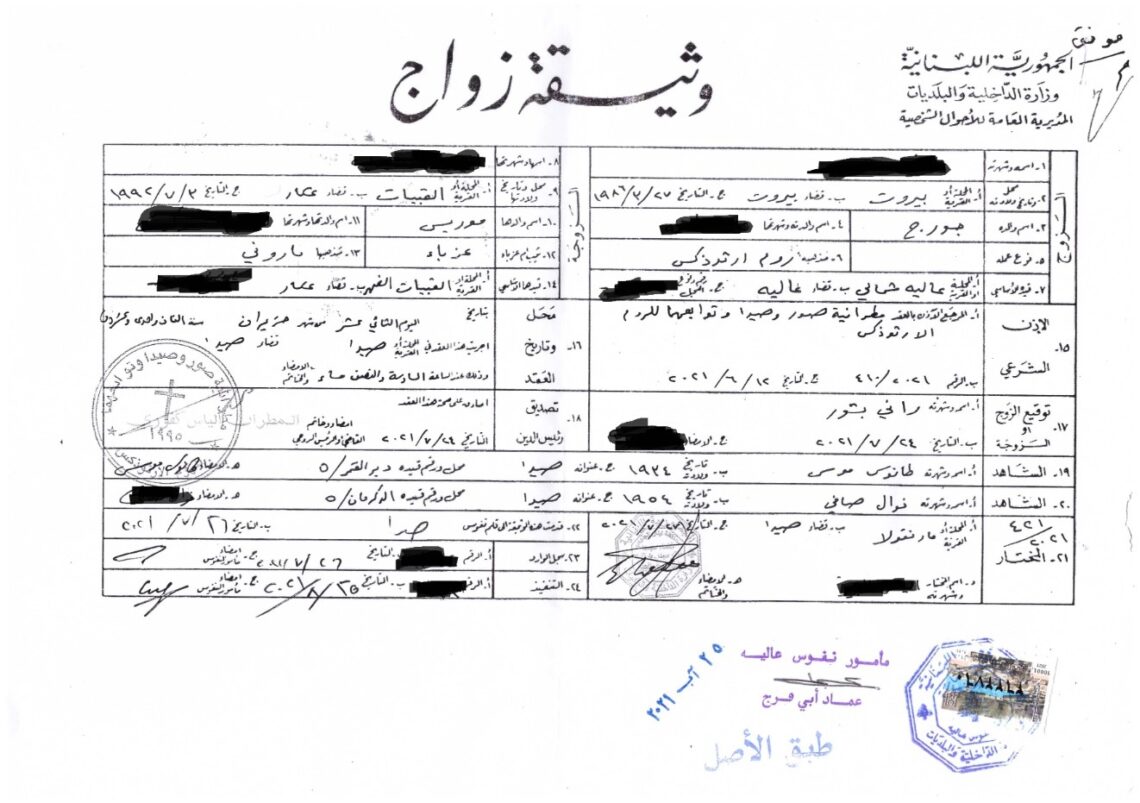 موفق
الجمهورية اللبنانية
وزارة الداخلية والبلديات
المديرية العامة للأحوال الشخصية
وثيقة زواج
الزوج
١- اسمه وشهرته
٢- محل وتاريخ ولادته أ. المحلة أو القرية بيروت ب- قضاء بيروت ج- التاريخ
٣- اسم والده جورج ٤- اسم والدته وشهرتها
٥- نوع عمله ٦- مذهبه روم ارثوذكس
٧- قيده الأساسي أ. المحلة أو القرية عاليه ب- قضاء عاليه ج- رقم السجل
الزوجة
٨- اسمها وشهرتها
٩- محل وتاريخ ولادتها أ. المحلة أو القرية القبيات ب- قضاء عكار ج- التاريخ ١٩٩٢/٧/٣
١٠- اسم والدها موريس ١١- اسم والدتها وشهرتها
١٢- عزباء ١٣- مذهبها ماروني
١٤- قيدها الأساسي أ. المحلة أو القرية القبيات ب- قضاء عكار
١٥- الإذن الشرعي
أ- المرجع الآذن بالعقد مطرانية صور وصيدا وتوابعهما للروم الارثوذكس
ب- الرقم ٤١٠/٢٠٢١ ج- التاريخ ٢٠٢١/٦/١٢
١٦- محل وتاريخ العقد
بتاريخ اليوم الثاني عشر من شهر حزيران سنة
اجريت هذا العقد في المحلة أو القرية صيدا قضاء صيدا
وذلك عند الساعة السادسة والنصف مساء الامضاء والخاتم
١٧- توقيع الزوج أو الزوجة
أ. اسم وشهرته راني بشور
ب- التاريخ ٢٠٢١/٧/٢٤ ج- الامضاء
١٨- تصديق رئيس الدين
اصادق على صحة هذا العقد
التاريخ ٢٠٢١/٧/٢٤ امضاء وخاتم القاضي أو الرئيس الروحي
المطران الياس كفوري
صور وصيدا
١٩٩٥
١٩- الشاهد أ. اسم وشهرته طانوس موسى ب- تاريخ ولادته ١٩٣٤ ج- عنوانه صيدا محل ورقم قيده دير القمر/٥ ه- الامضاء
٢٠- الشاهد أ. اسم وشهرته نوال صافي ب- تاريخ ولادته ١٩٥٤ ج- عنوانه صيدا محل ورقم قيده /٥ ه- الامضاء
٤٢١/٢٠٢١
٢١- المختار أ. المحلة أو القرية مار نقولا ب- قضاء صيدا ج- التاريخ ٢٠٢١/٧/٢٧
د. اسم المختار وشهرته ه- الامضاء والخاتم
٢٢- قدمت هذه الوثيقة الى قلم نفوس صيدا ب- التاريخ ٢٠٢١/٧/٢٦
٢٣- سجل الوارد أ. الرقم ب- التاريخ ج- امضاء مأمور النفوس
٢٤- التنفيذ أ. الرقم ب- التاريخ ٢٠٢١/٨/٢٥ ج- امضاء مأمور النفوس
مأمور نفوس عاليه
عماد أبي فرج
٢٥ آب ٢٠٢١
طبق الأصل
الداخلية والبلديات